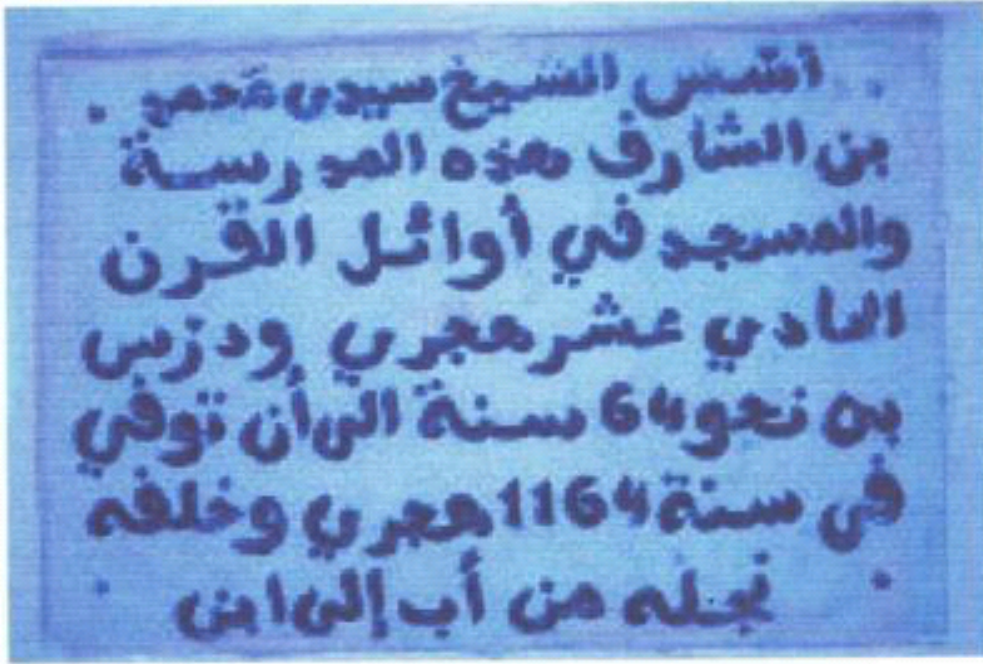 أسّس الشيخ سيدي محمد
بن الشارف هذه المدرسة
والمسجد في أوائل القرن
الحادي عشر هجري ودرّس
به نحو 64 سنة الى أن توفي
في سنة 1164 هجري وخلفه
نجله من أب إلى ابن